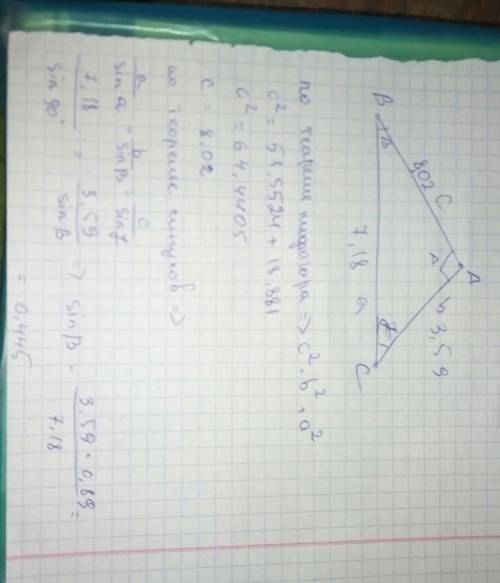 A
B
C
A
B
8,02 C
b 3,59
7,18 a
C
по теореме пифагора => c² = b² + a²
c² = 51,5524 + 12,881
c² = 64,4405
c = 8,02
по теореме синусов =>
a/sin α = b/sin β = c/sin γ
7,18/sin 90° = 3,59/sin β => sin β = 3,59 · 0,89/7,18 =
= 0,445